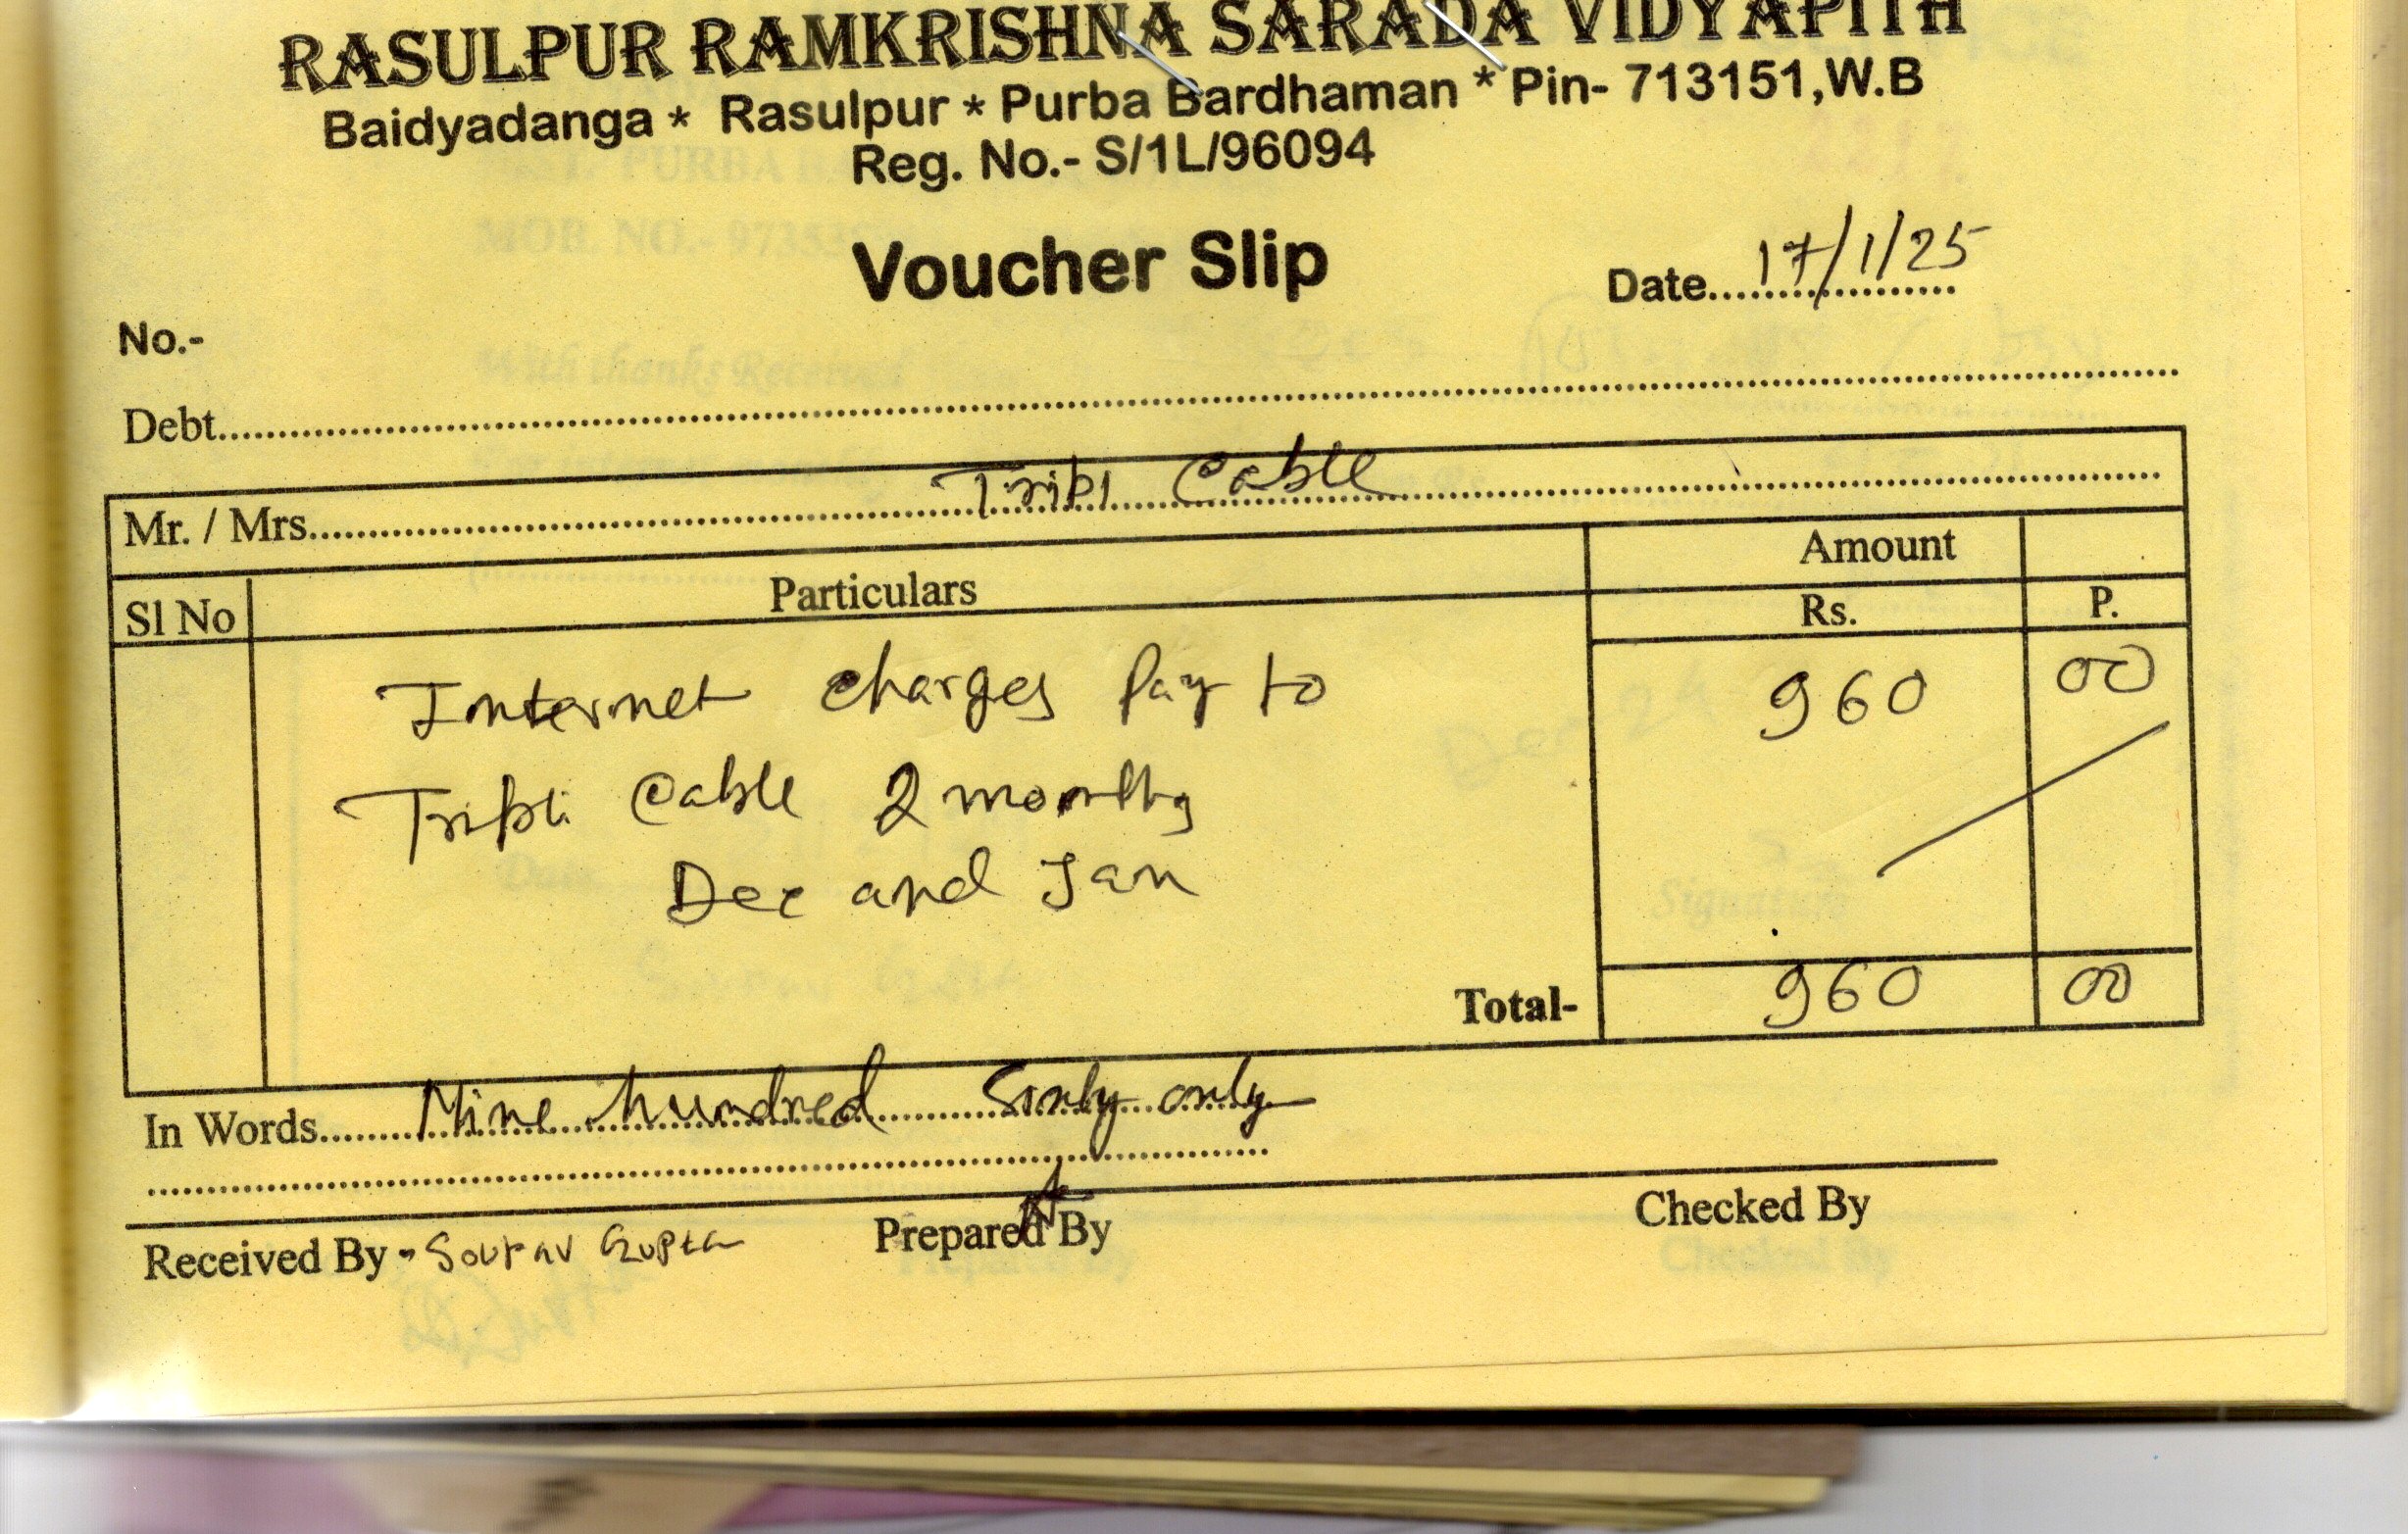 RASULPUR RAMKRISHNA SARADA VIDYAPITH
Baidyadanga * Rasulpur * Purba Bardhaman * Pin- 713151,W.B
Reg. No.- S/1L/96094
Voucher Slip
Date 17/1/25
No.-
Debt
Mr. / Mrs. Cable
Sl No Particulars Amount
Rs. P.
Internet charges Pay to 960 00
Cable 2 months
Dec and Jan
Total- 960 00
In Words Nine hundred Sixty only
Received By - Sourav Gupta Prepared By Checked By